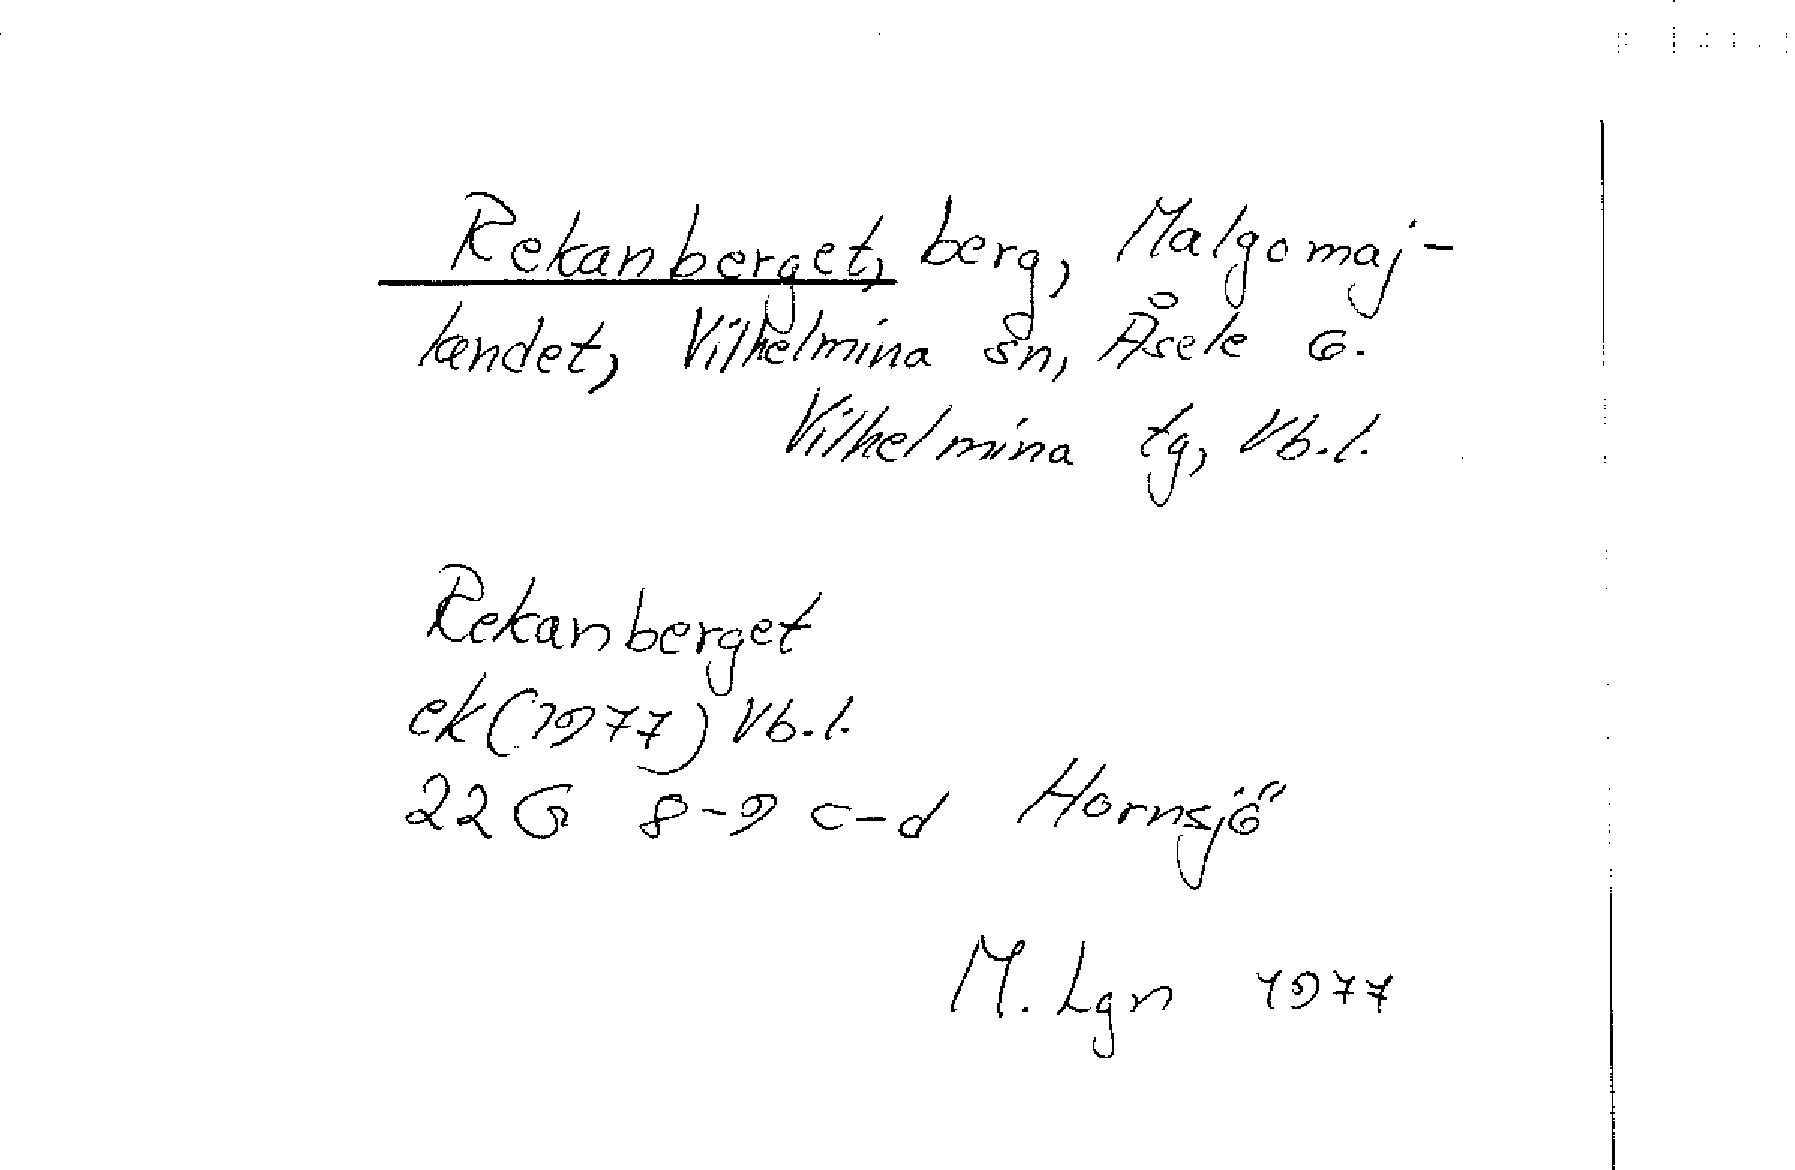 Rekanberget, berg, Malgomaj-
landet, Vilhelmina sn, Åsele G.
Vilhelmina tg, Vb.l.
Rekanberget
ek (1977) Vb.l.
22 G 8-9 c-d Hornsjö
M. Lgn 1977